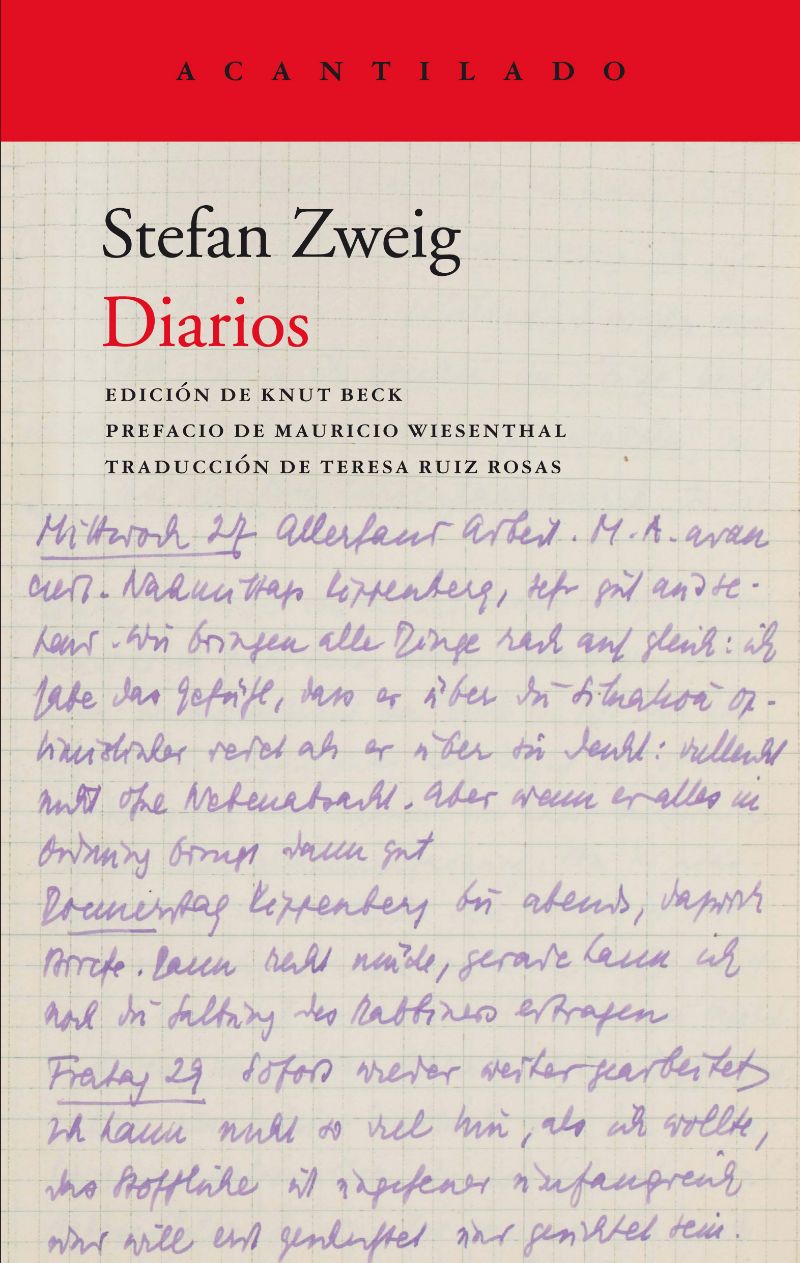 ACANTILADO
Stefan Zweig
Diarios
EDICIÓN DE KNUT BECK
PREFACIO DE MAURICIO WIESENTHAL
TRADUCCIÓN DE TERESA RUIZ ROSAS
Mittwoch 27 Allerhand Arbeit. M. A. avan
ciert. Nachmittags Kippenberg, sehr gut ausse-
hend. Wir bringen alle Dinge rasch auf gleich: ich
habe das Gefühl, dass er über die Situation op-
timistischer redet als er über sie denkt: vielleicht
nicht ohne Nebenabsicht. Aber wenn er alles in
Ordnung bringt dann gut
Donnerstag Kippenberg bis abends,
Briefe. Dann recht müde, gerade kann ich
noch die des Rabbiners ertragen
Freitag 29 Sofort wieder weitergearbeitet
Ich kann nicht so viel tun, als ich wollte,
das Stoffliche ist ungeheuer umfangreich
und will erst gesichtet sein.